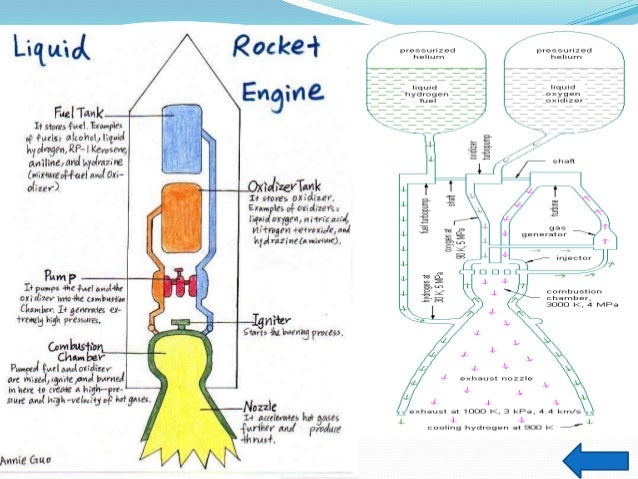 Liquid Rocket
Engine
Fuel Tank
It stores fuel. Examples
of fuels: alcohol, liquid
hydrogen, RP-1 kerosene,
aniline, and hydrazine
(mixture of fuel and oxi-
dizer)
Oxidizer Tank
It stores oxidizer.
Examples of oxidizers:
liquid oxygen, nitric acid,
nitrogen tetroxide, and
hydrazine (a mixture).
Pump
It pumps the fuel and the
oxidizer into the combustion
Chamber. It generates ex-
tremely high pressures.
Igniter
Starts the burning process.
Combustion
Chamber
Pumped fuel and oxidizer
are mixed, ignite, and burned
in here to create a high-pre-
ssure and high-velocity of hot gases.
Nozzle
It accelerates hot gases
further and produce
thrust.
Annie Guo
pressurized
helium
liquid
hydrogen
fuel
pressurized
helium
liquid
oxygen
oxidizer
oxidizer
turbopump
shaft
fuel turbopump
shaft
turbine
gas
generator
oxygen at
90 K, 5 MPa
injector
hydrogen at
30 K, 5 MPa
combustion
chamber,
3000 K, 4 MPa
exhaust nozzle
exhaust at 1000 K, 3 kPa, 4.4 km/s
cooling hydrogen at 900 K